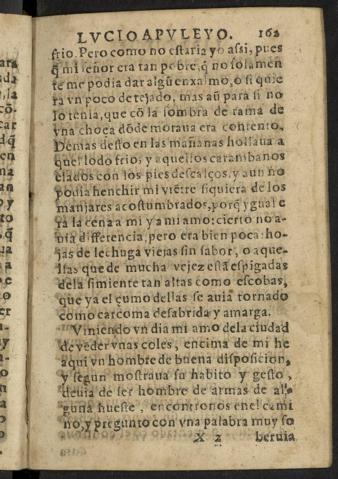 LVCIO APVLEYO. 162
frio. Pero como no estaria yo assi, pues
q̃ mi señor era tan pobre, q̃ no solamen
te me podia dar algũ enxalmo, o si quie
ra vn poco de tejado, mas aũ para si no
lo tenia, que cõ la sombra de rama de
vna choça dõde moraua era contento.
Demas desto en las mañanas hollaua a
quel lodo frio, y aquellos carambanos
elados con los pies descalços, y aun no
podia henchir mi viẽtre siquiera de los
manjares acostumbrados, porq̃ ygual e
ra la cena a mi y a mi amo: cierto no a-
uia differencia, pero era bien poca: ho-
jas de lechuga viejas sin sabor, o aque-
llas que de mucha vejez estã espigadas
de la simiente tan altas como escobas,
que ya el çumo dellas se auia tornado
como carcoma desabrida y amarga.
Viniendo vn dia mi amo dela ciudad
de veder vnas coles, encima de mi he
aqui vn hombre de buena disposicion,
y segun mostraua su habito y gesto,
deuia de ser hombre de armas de al-
guna hueste, encontronos enel cami
no, y pregunto con vna palabra muy so
X 2 beruia